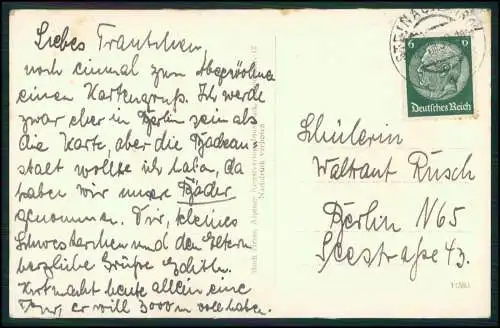 Liebes Trautchen,
noch einmal zum Abgewöhnen
einen Kartengruß. Ich werde
zwar eher in Berlin sein als
die Karte, aber die Badean-
stalt wollte ich haben, da
haben wir unsere Bäder
genommen. Dir, kleines
Schwesterchen und den Eltern
herzliche Grüße Edith.
Kurt macht heute allein eine
Tour, er will 3000 m voll haben.
Nachdruck verboten
STEINACH
6
6
Deutsches Reich
Schülerin
Waltraut Rusch
Berlin N65
Seestraße 43.